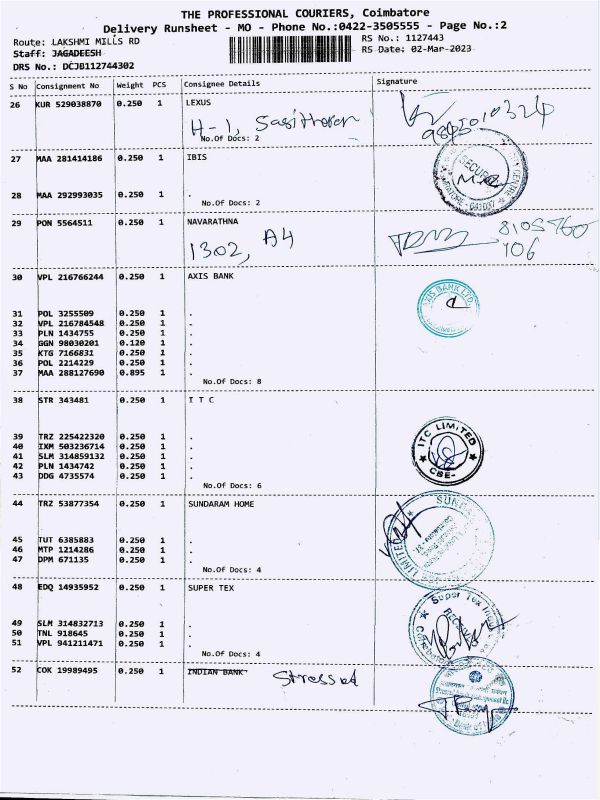 THE PROFESSIONAL COURIERS, Coimbatore
Delivery Runsheet - MO - Phone No.:0422-3505555 - Page No.:2
Route: LAKSHMI MILLS RD
RS No.: 1127443
Staff: JAGADEESH
RS Date: 02-Mar-2023
DRS No.: DCJB112744302
S No Consignment No Weight PCS Consignee Details Signature
26 KUR 529038870 0.250 1 LEXUS
H-1, Sasitharan
9845010324
No.Of Docs: 2
27 MAA 281414186 0.250 1 IBIS
SECURE
CENTRE
28 MAA 292993035 0.250 1 .
No.Of Docs: 2
29 PON 5564511 0.250 1 NAVARATHNA
1302, A4
8105760
106
30 VPL 216766244 0.250 1 AXIS BANK
AXIS BANK LTD.
31 POL 3255509 0.250 1 .
32 VPL 216784548 0.250 1 .
33 PLN 1434755 0.250 1 .
34 GGN 98030201 0.120 1 .
35 KTG 7166831 0.250 1 .
36 POL 2214229 0.250 1 .
37 MAA 288127690 0.895 1 .
No.Of Docs: 8
38 STR 343481 0.250 1 I T C
ITC LIMITED
CBE-
39 TRZ 225422320 0.250 1 .
40 IXM 503236714 0.250 1 .
41 SLM 314859132 0.250 1 .
42 PLN 1434742 0.250 1 .
43 DDG 4735574 0.250 1 .
No.Of Docs: 6
44 TRZ 53877354 0.250 1 SUNDARAM HOME
LIMITED
45 TUT 6385883 0.250 1 .
46 MTP 1214286 0.250 1 .
47 DPM 671135 0.250 1 .
No.Of Docs: 4
48 EDQ 14935952 0.250 1 SUPER TEX
Super Tex
49 SLM 314832713 0.250 1 .
50 TNL 918645 0.250 1 .
51 VPL 941211471 0.250 1 .
No.Of Docs: 4
52 COK 19989495 0.250 1 INDIAN BANK
Stressed